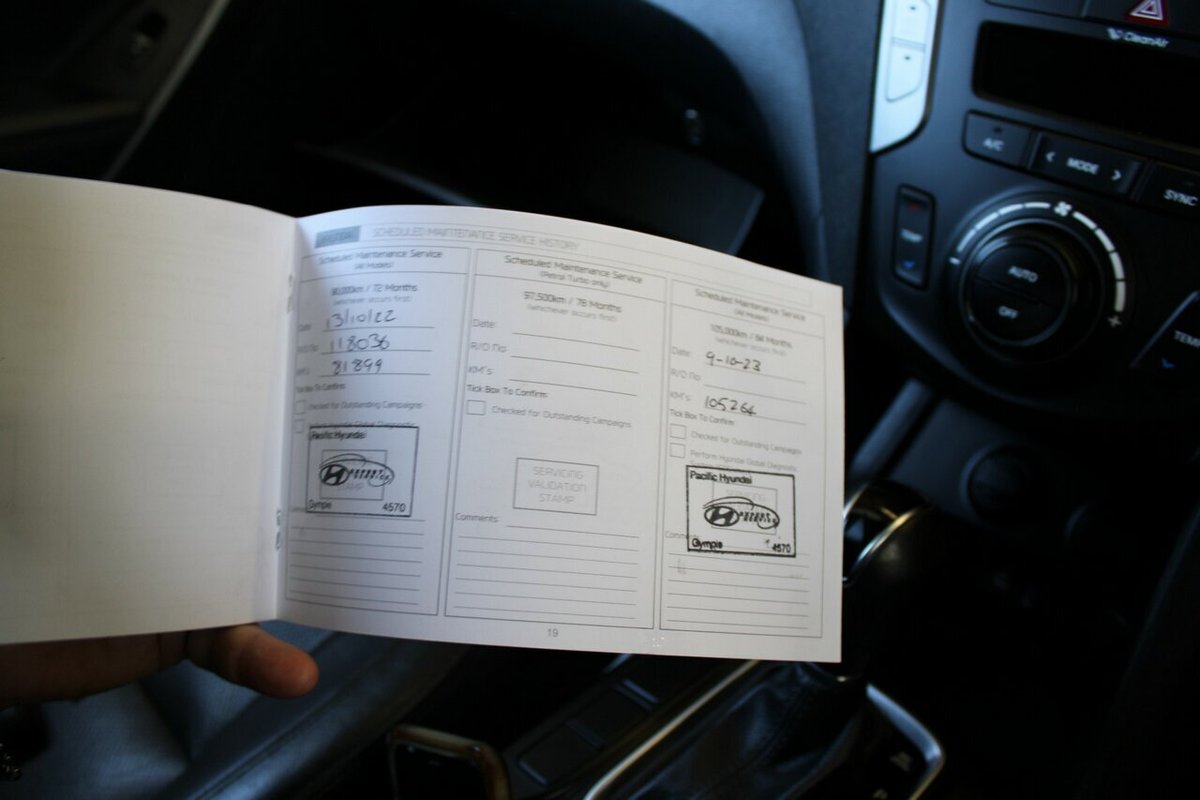 SCHEDULED MAINTENANCE SERVICE HISTORY
Scheduled Maintenance Service
(All Models)
90,000km / 72 Months
(whichever occurs first)
Date: 13/10/22
R/O No 118036
KM's 81899
Tick Box To Confirm:
Checked for Outstanding Campaigns
Pacific Hyundai
Gympie 4570
Scheduled Maintenance Service
(Petrol Turbo only)
97,500km / 78 Months
(whichever occurs first)
Date:
R/O No
KM's:
Tick Box To Confirm:
Checked for Outstanding Campaigns
SERVICING
VALIDATION
STAMP
Comments:
Scheduled Maintenance Service
(All Models)
105,000km / 84 Months
(whichever occurs first)
Date: 9-10-23
R/O No
KM's: 105264
Tick Box To Confirm:
Checked for Outstanding Campaigns
Perform Hyundai Global Diagnostic
Pacific Hyundai
Gympie 4570
19
CleanAir
A/C
MODE
SYNC
TEMP
AUTO
OFF
TEMP